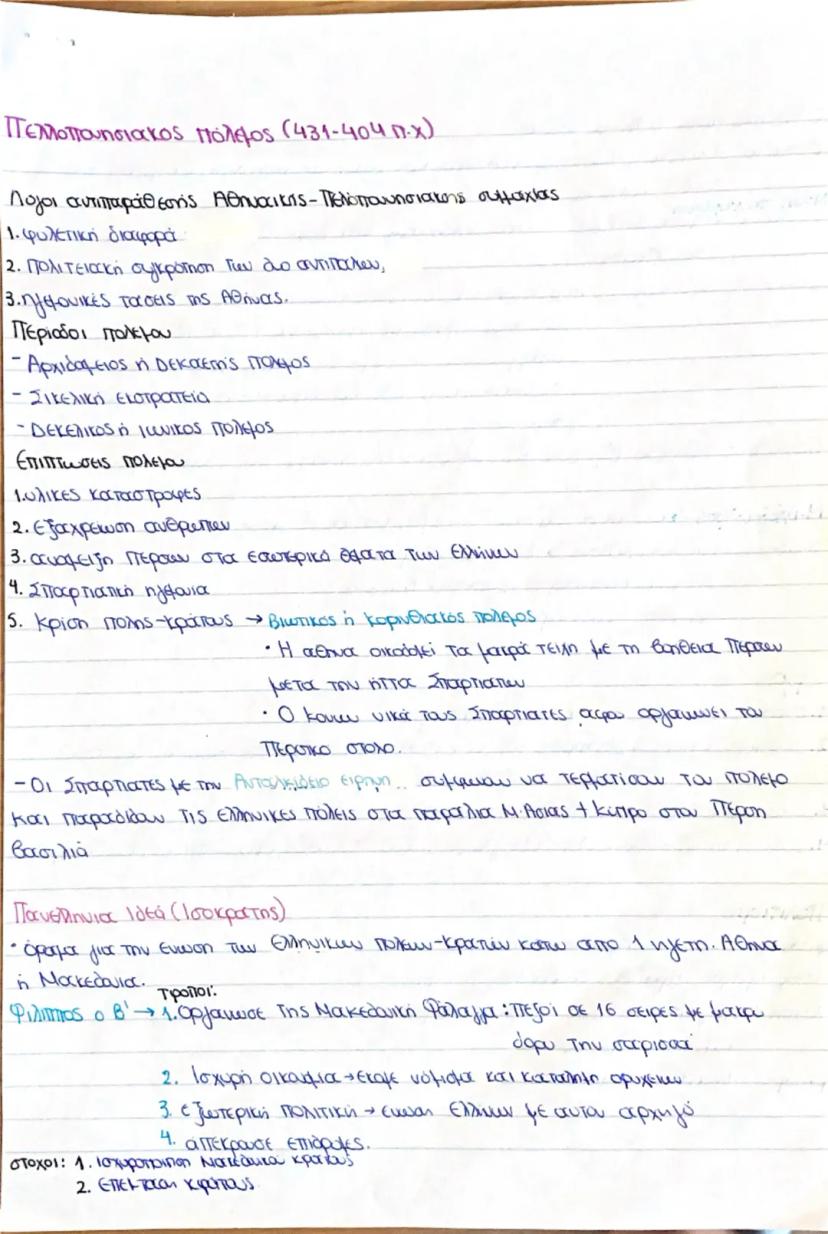 Πελλοπονησιακος πόλεμος (431-404 π.χ)
Λογοι αντιπαράθεσης Αθηναικης-Πελοποννησιακης συμμαχίας
1. φυλετική διαφορά
2. Πολιτειακή συγκρότηση των δυο αντιπαλων,
3. ηγεμονικές τασεις της Αθήνας.
Περίοδοι πολεμου
- Αρχιδαμειος ή Δεκαετής πολεμος
- Σικελική εκστρατεία
- Δεκελικος ή ιωνικος πολεμος
Επιπτωσεις πολεμου
1. υλικες καταστροφες
2. εξαχρειωση ανθρωπων
3. αναμειξη Περσων στα εσωτερικά θεματα των Ελληνων
4. Σπαρτιατικη ηγεμονια
5. Κριση πολης-κράτους → Βιωτικος ή κορινθιακός πολεμος
• Η αθηνα οικοδομεί τα μακρά τειχη με τη βοηθεια Περσων
μετα την ήττα Σπαρτιατων
• Ο Κονων νικά τους Σπαρτιατες αφου οργανωνει τον
Περσικο στολο.
- Οι Σπαρτιατες με την Ανταλκιδειο ειρηνη.. συμφωνουν να τερματισουν τον πολεμο
και παραδιδουν τις ελληνικες πόλεις στα παραλια Μ. Ασιας + κυπρο στον Περση
βασιλιά
Πανελληνια ιδεά (Ισοκρατης)
• όραμα για την ενωση των Ελληνικων πολεων-κρατών κατω απο 1 ηγετη. Αθηνα
ή Μακεδονια.
τροποι:
Φιλιππος ο Β' → 1. Οργανωσε της Μακεδονική Φάλαγγα: Πεζοί σε 16 σειρες με μακρυ
δορυ την σαρισσα
2. Ισχυρή οικονομια → εκοψε νόμισμα και καταληψη ορυχειων
3. εξωτερική πολιτική → ενωση Ελληνων με αυτον αρχηγό
4. απέκρουσε επιδρομες.
στοχοι: 1. Ισχυροποιηση Μακεδονικου κρατους
2. Επεκταση κράτους